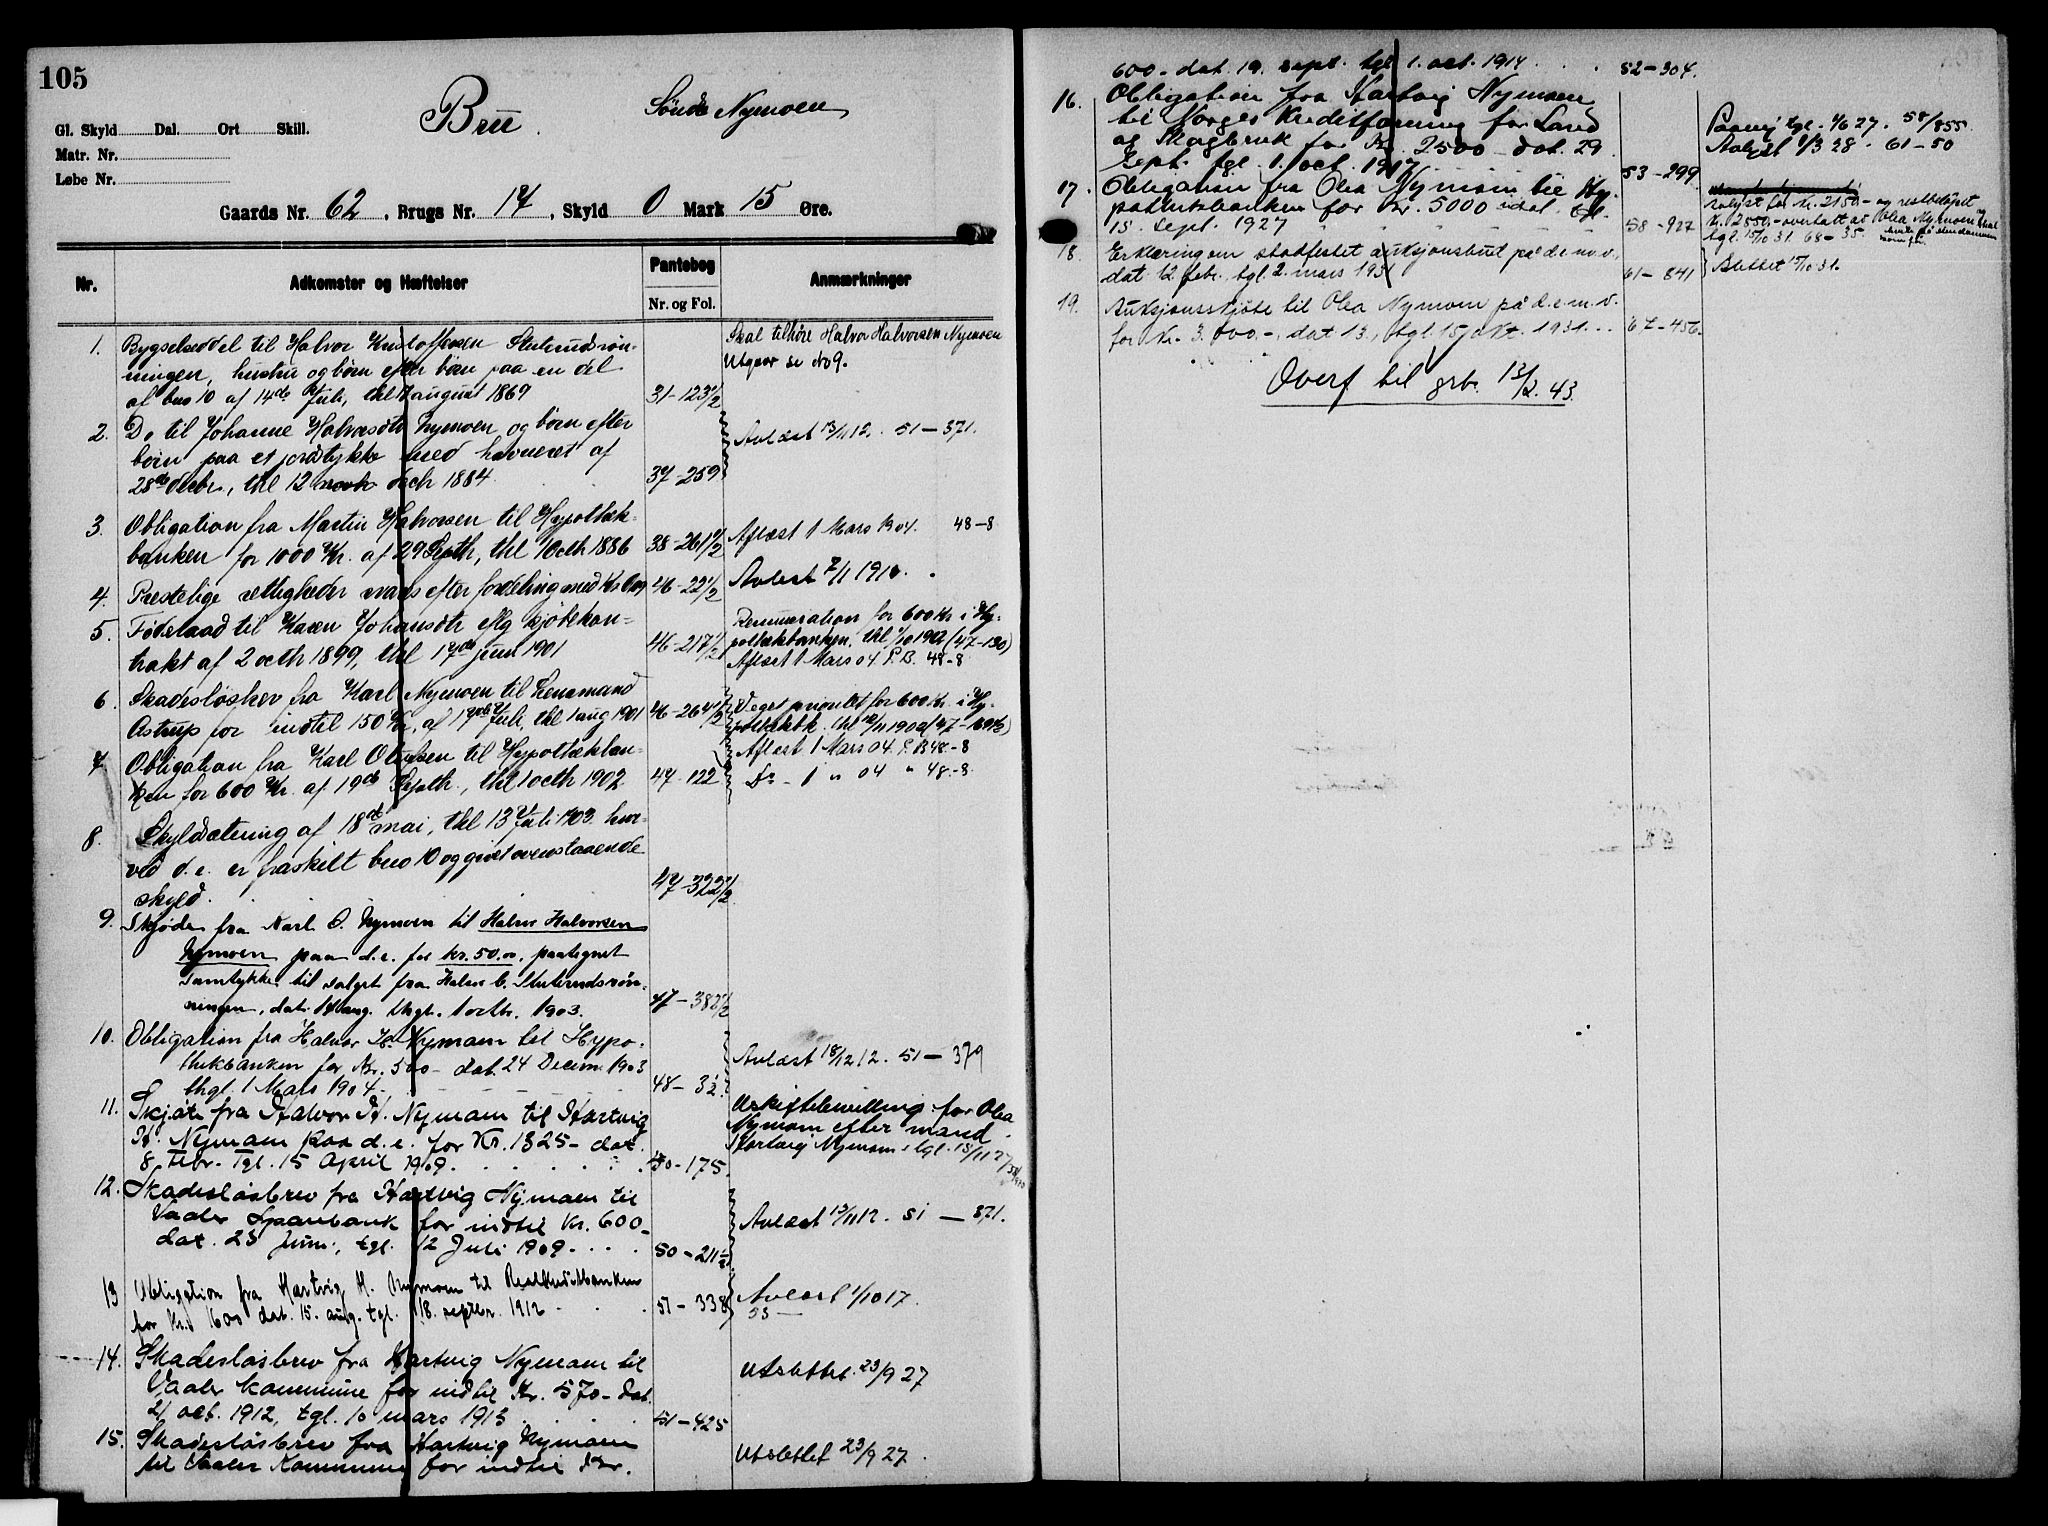 105
Bru. Søndr Nymoen
Gl. Skyld Dal. Ort Skill.
Matr. Nr.
Løbe Nr.
Gaards Nr. 62, Brugs Nr. 14, Skyld 0 Mark 15 Øre.
Nr. Adkomster og Hæftelser Pantebog Nr. og Fol. Anmærkninger
1. Bygselseddel til Halvor Kristoffersen Sluterudsrøn-
ningen, hustru og børn efter børn paa en del
af bno 10 af 14de Juli, thl august 1869 31-123 1/2
Skal tilhøre Halvor Halvorsen Nymoen
Utgaar se No 9.
2. Do til Johanne Halvorsdtr Nymoen og børn efter
børn paa et jordstykke med havneret af
28de decbr, thl 12 decb 1884 37-259
Avlæst 13/11 12. 51-371.
3. Obligation fra Martin Halvorsen til Hypothek-
banken for 1000 Kr. af 29 Septb, thl 1 octb 1886 38-261 1/2
Aflæst 1 Mars 1904. 48-8
4. Prestelige rettigheder efter fordeling med 46-22 1/2
Avlæst 7/11 1910.
5. Føderaad til Karen Johansdtr iflg skjøtekon-
trakt af 2 octb 1899, thl 17de juni 1901 46-217 1/2
Renunsiation for 600 Kr i Hy-
pothekbanken. thl 1/10 1902 (47-130)
Aflæst 1 Mars 04 P.B. 48-8
6. Skadesløsbrev fra Karl Nymoen til Lensmand
Astrup for indtil 150 Kr, af 17de Juli, thl 1 aug 1901 46-264 1/2
Veget prioritet for 600 Kr. i Hy-
pothekbk. thl 1902 (47-
Aflæst 1 Mars 04. P.B 48-8
7 Obligation fra Karl Olsen til Hypothekban-
ken for 600 Kr. af 19de Septb., thl 1 octb 1902. 47-122
Do - 1 " 04 " 48-8.
8. Skyldsætning af 18de mai, thl 13 Juli 1903. hvor-
ved d.e. er fraskilt bno 10 og givet ovenstaaende
skyld. 47-322 1/2
9. Skjøde fra Karl O. Nymoen til Halvor Halvorsen
Nymoen paa d.e. for kr. 50.00, paategnet
samtykke til salget fra Halvor C. Sluterudsrøn-
ningen, dat. aug. thgl. 1 octb. 1903. 47-382 1/2
10. Obligation fra Halvor H. Nymoen til Hypo-
thekbanken for Kr. 500 - dat. 24 Decem 1903
thgl. 1 Mars 1904. 48-3 1/2
Avlæst 18/12 12. 51-379
11. Skjøte fra Halvor H. Nymoen til Hartvig
H. Nymoen paa d.e. for Kr. 1325- dat.
8 Febr. Tgl. 15 April 1909. 50-175.
Uskiftebevilling for Olea
Nymoen efter mand
Hartvig Nymoen, tgl. 15/11 27
12. Skadesløsbrev fra Hartvig Nymoen til
Vaaler Sparebank for indtil Kr. 600-
dat. 23 Juni, tgl. 12 Juli 1909. 50-211 1/2
Avlæst 13/11 12. 51-371.
13 Obligation fra Hartvig H. Nymoen til Realkreditbanken
for Kr. 1600 dat. 15. aug. tgl. 18. septbr. 1912 51-338
Avlæst 1/10 17.
53
14. Skadesløsbrev fra Hartvig Nymoen til
Vaaler kommune for indtil Kr. 570- dat.
21 oct. 1912, tgl. 10 mars 1913. 51-425
Utslettet 23/9 27
15. Skadesløsbrev fra Hartvig Nymoen
til Vaaler Kommune for indtil Kr.
Utslettet 23/9 27.
600- dat. 19. sept. tgl 1. oct. 1914 52-304.
16. Obligation fra Hartvig Nymoen
til Norges Kreditforening for Land
og Skogbruk for Kr. 2500- dat. 29
Sept. tgl. 1. oct. 1917. 53-299
tgl. 4/6 27. 58/855.
Avlyst 1/3 28. 61-50
17. Obligation fra Olea Nymoen til Hy-
potekbanken for Kr. 5000 tgl.
15. sept. 1927 58-927
Avlyst for kr. 2150.- og restbeløpet
kr. 2850.- overtatt av Olea Nymoen
tgl. 15/10 31. 68-35.
18. Erklæring om stadfestet auksjonsbud på d.e. m.v.
dat 12 febr. tgl. 2. mars 1931 61-841
Slettet 15/10 31.
19. Auksjonsskjøte til Olea Nymoen på d.e. m.v.
for Kr. 3.000.-, dat 13., tgl. 15. okt. 1931. 67-456.
Overf til grb. 13/2. 43.